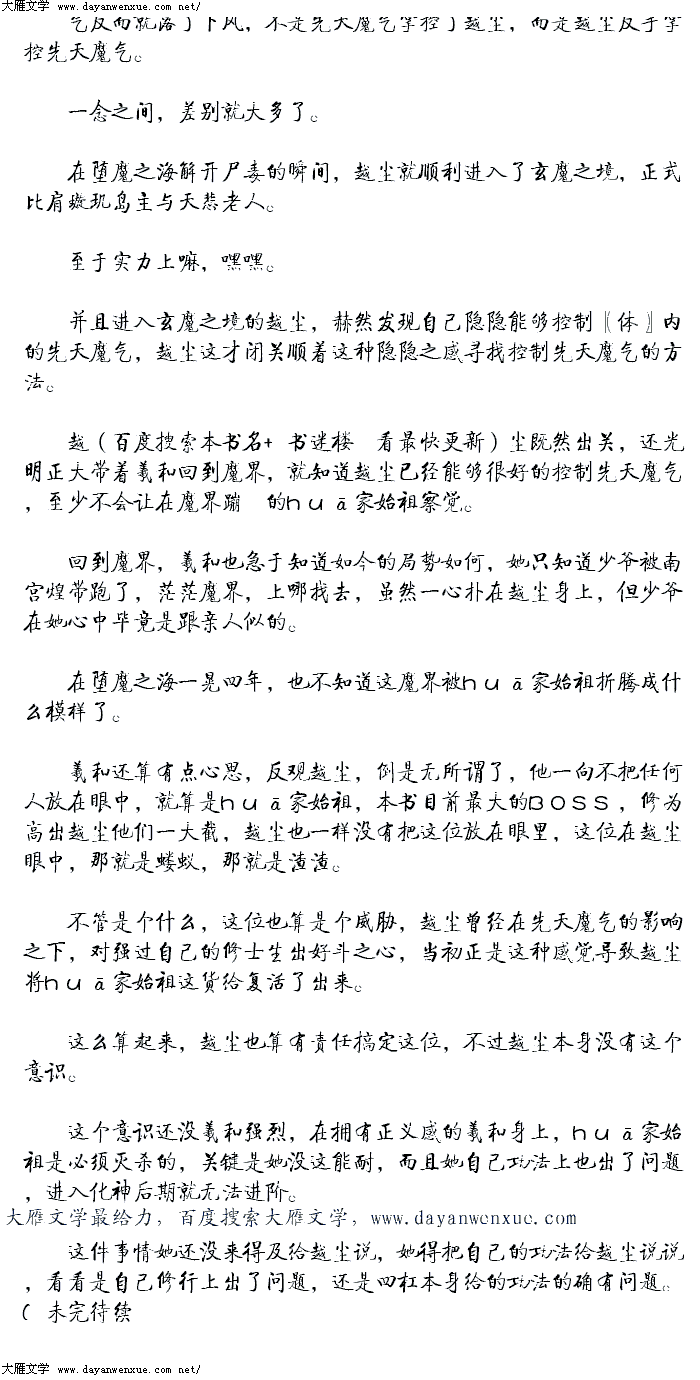 大雁文学 www.dayanwenxue.com net/
气反而就落了下风，不是先天魔气掌控了越尘，而是越尘反手掌
控先天魔气。
一念之间，差别就大多了。
在堕魔之海解开尸毒的瞬间，越尘就顺利进入了玄魔之境，正式
比肩璇玑岛主与天悲老人。
至于实力上嘛，嘿嘿。
并且进入玄魔之境的越尘，赫然发现自己隐隐能够控制〖体〗内
的先天魔气，越尘这才闭关顺着这种隐隐之感寻找控制先天魔气的方
法。
越（百度搜索本书名+ 书迷楼 看最快更新）尘既然出关，还光
明正大带着羲和回到魔界，就知道越尘已经能够很好的控制先天魔气
，至少不会让在魔界蹦 的huā家始祖察觉。
回到魔界，羲和也急于知道如今的局势如何，她只知道少爷被南
宫煌带跑了，茫茫魔界，上哪找去，虽然一心扑在越尘身上，但少爷
在她心中毕竟是跟亲人似的。
在堕魔之海一晃四年，也不知道这魔界被huā家始祖折腾成什
么模样了。
羲和还算有点心思，反观越尘，倒是无所谓了，他一向不把任何
人放在眼中，就算是huā家始祖，本书目前最大的BOSS，修为
高出越尘他们一大截，越尘也一样没有把这位放在眼里，这位在越尘
眼中，那就是蝼蚁，那就是渣渣。
不管是个什么，这位也算是个威胁，越尘曾经在先天魔气的影响
之下，对强过自己的修士生出好斗之心，当初正是这种感觉导致越尘
将huā家始祖这货给复活了出来。
这么算起来，越尘也算有责任搞定这位，不过越尘本身没有这个
意识。
这个意识还没羲和强烈，在拥有正义感的羲和身上，huā家始
祖是必须灭杀的，关键是她没这能耐，而且她自己功法上也出了问题
，进入化神后期就无法进阶。
大雁文学最给力，百度搜索大雁文学，www.dayanwenxue.com
这件事情她还没来得及给越尘说，她得把自己的功法给越尘说说
，看看是自己修行上出了问题，还是四杠本身给的功法的确有问题。
( 未完待续
大雁文学 www.dayanwenxue.com net/